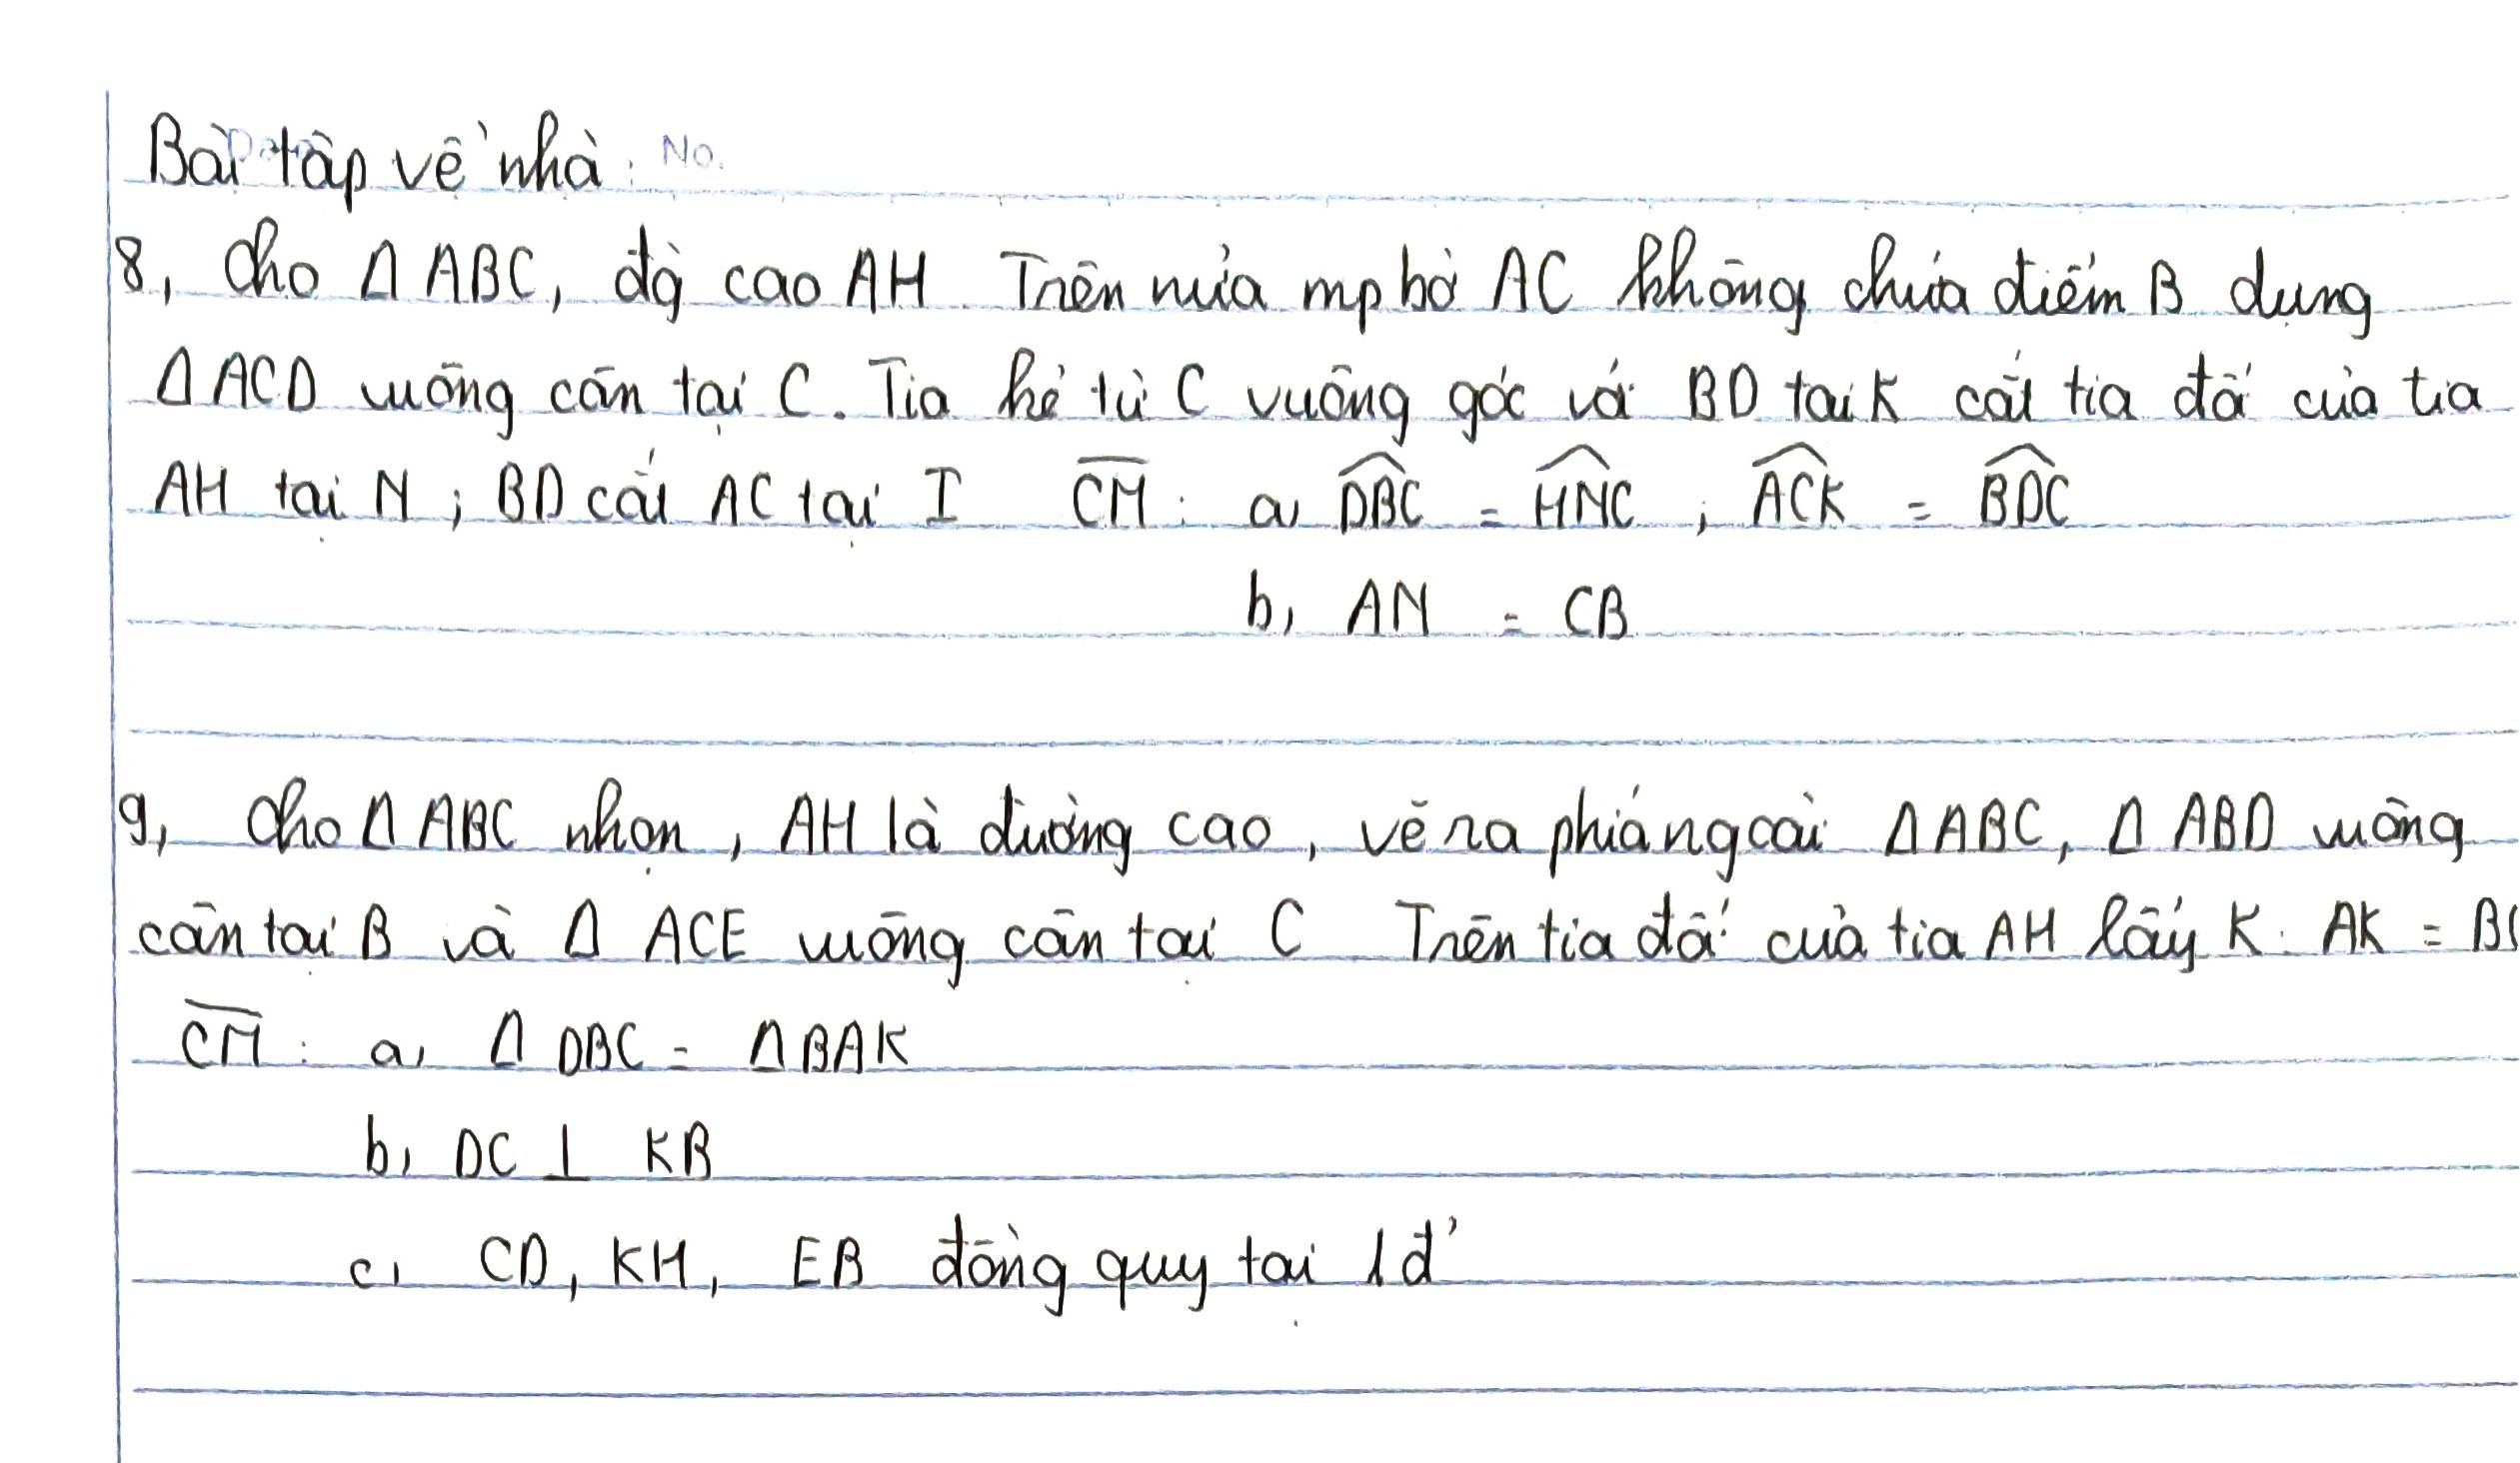 Bài tập về nhà: No.
8, Cho Δ ABC, đg cao AH Trên nửa mp bờ AC không chứa điểm B dựng
Δ ACD vuông cân tại C. Tia kẻ từ C vuông góc với BD tại K cắt tia đối của tia
AH tại N ; BD cắt AC tại I CM: a, DBC = HNC ; ACK = BDC
b, AN = CB
9, Cho Δ ABC nhọn, AH là đường cao, vẽ ra phía ngoài Δ ABC, Δ ABD vuông
cân tại B và Δ ACE vuông cân tại C Trên tia đối của tia AH lấy K: AK = BC
CM: a, Δ DBC = Δ BAK
b, DC ⊥ KB
c, CD, KH, EB đồng quy tại 1 đ'